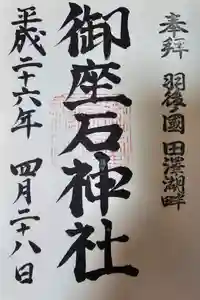 奉拝 羽後國 田澤湖畔
御座石神社
平成二十六年 四月二十八日